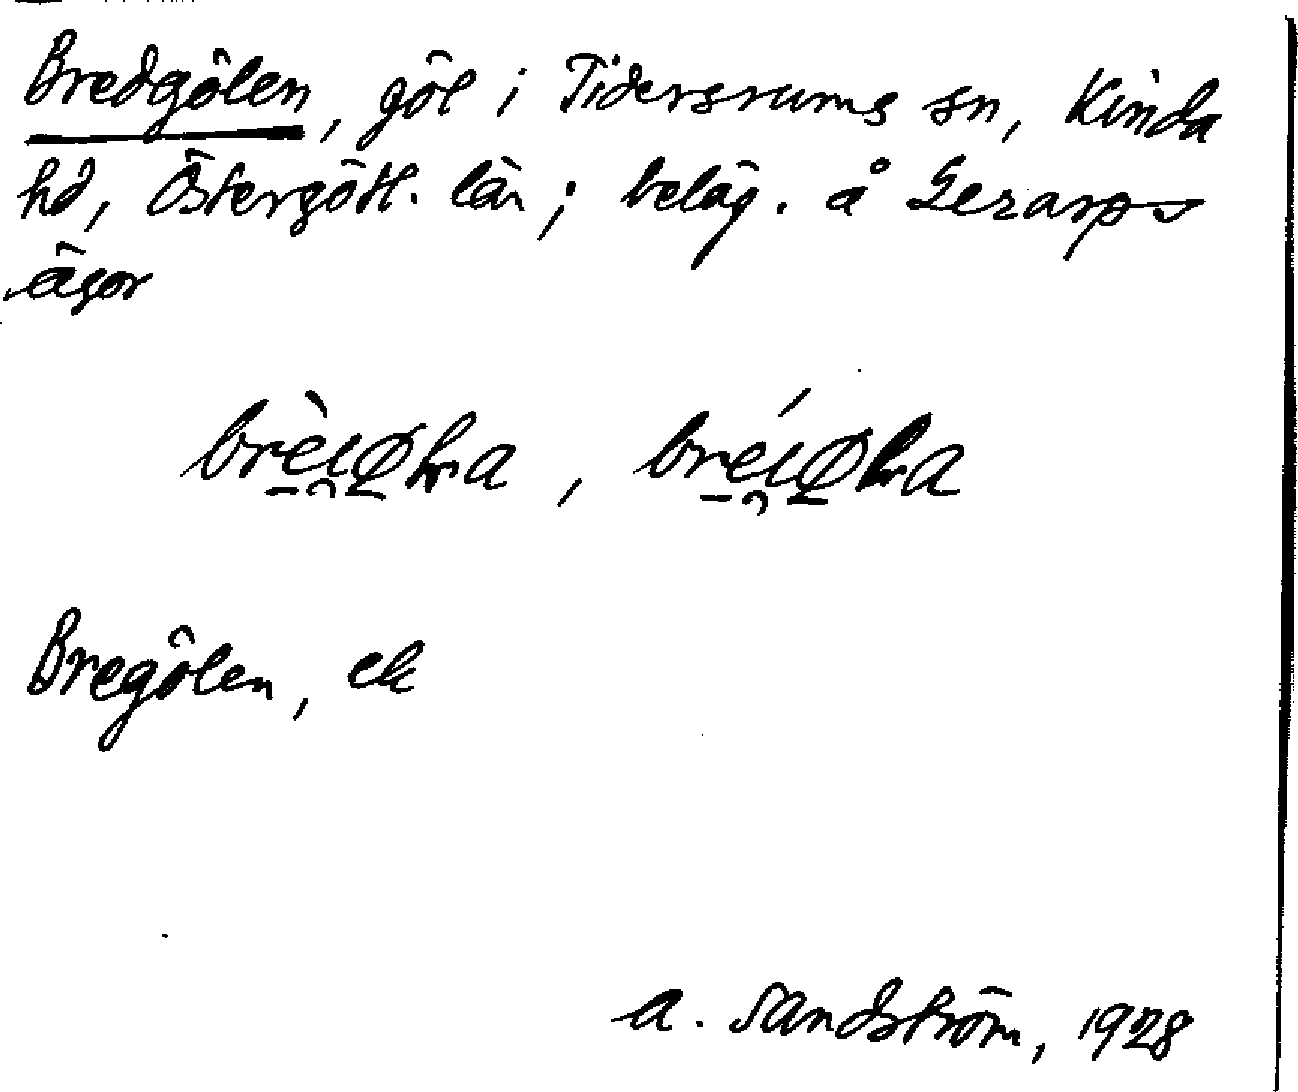 Bredgölen, göl i Tidersrums sn, Kinda
hd, Östergötl. län; beläg. å Gerarps
ägor
Bregölen, ek
A. Sandström, 1928